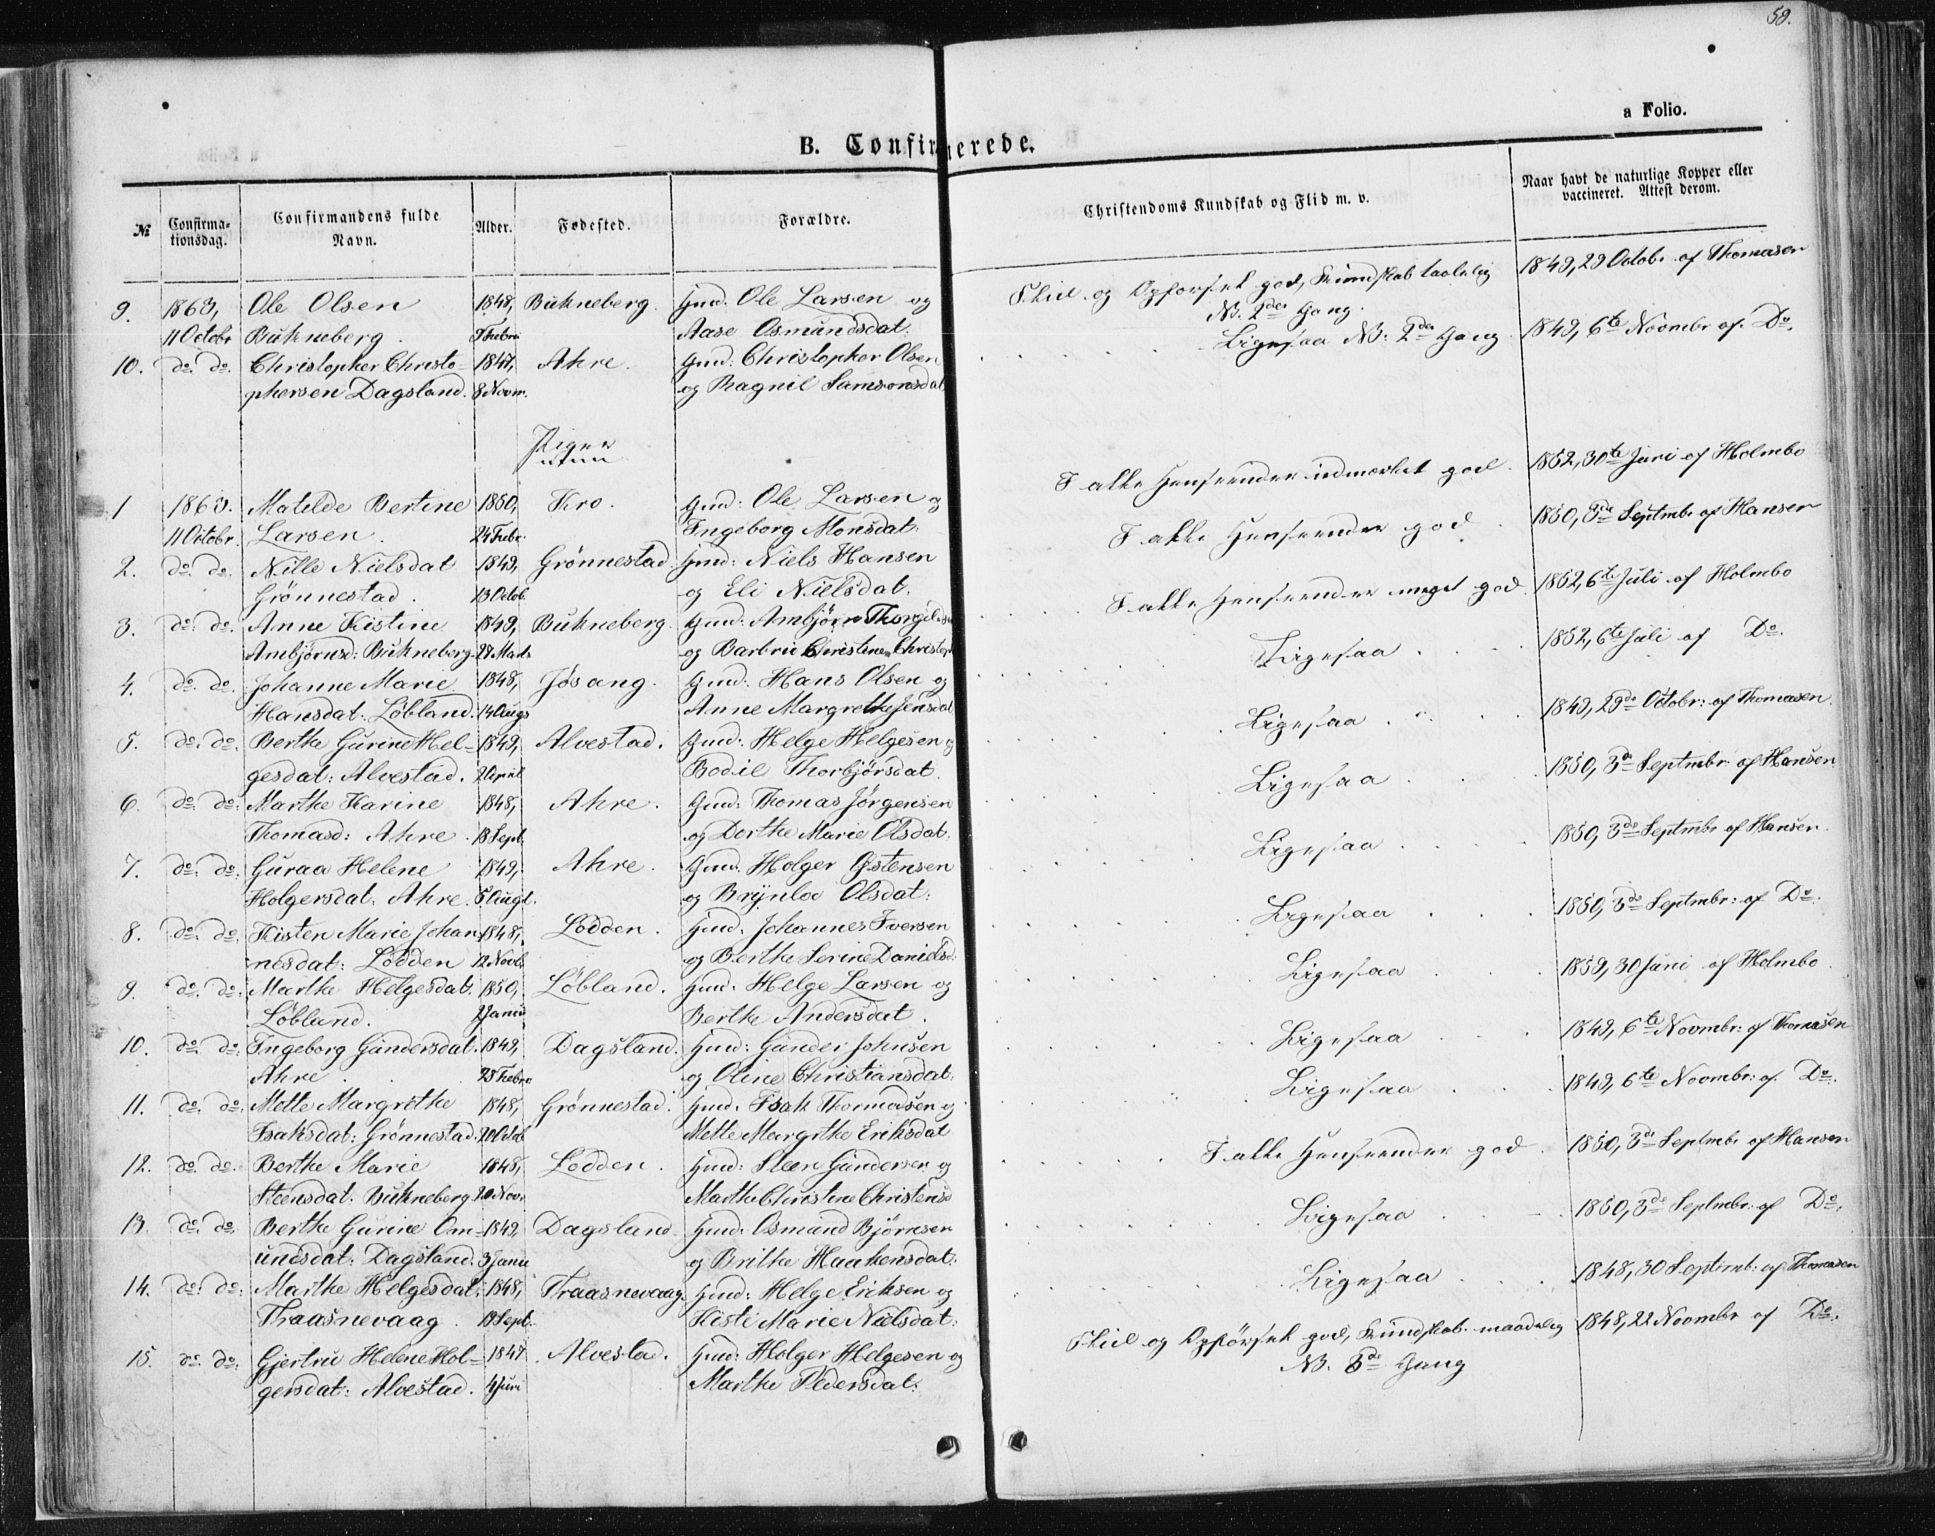 59.
a Folio.
B. Confirmerede.
№
Confirma-
tionsdag.
Confirmandens fulde
Navn.
Alder.
Fødested.
Forældre.
Christendoms Kundskab og Flid m. v.
Naar havt de naturlige Kopper eller
vaccineret. Attest derom.
9. 1863, Ole Olsen 1848, Bukneberg. Gmd: Ole Larsen og Skik og Opførsel god, Kundskab taalelig 1849, 29 Octobr af Thomasen
11 Octobr Bukneberg. Febr Aase Osmundsdat. NB. 2den Gang.
10. do. do. Christopher Christo- 1847, Ahre. Gmd: Christopher Olsen Ligesaa NB: 2den Gang. 1849, 6te Novmbr af Do.
phersen Dagsland. 8 Novm. og Ragnil Samsonsdat
Piger
1 1863. Matilde Bertine 1850, Kro. Gmd: Ole Larsen og I alle Henseender udmærket god. 1852, 30te Juni af Holmbo
11 Octobr. Larsen. 24 Febr. Ingeborg Monsdat.
2. do. do. Nille Nielsdat 1849, Grønnestad. Gmd: Niels Hansen I alle Henseender god. 1850, 3de Septmbr af Hansen
Grønnestad. 13 Octob. og Eli Nielsdat.
3. do. do. Anne Kistine 1849, Bukneberg. Gmd: Ambjørn Thorgils I alle Henseender meget god 1852, 6te Juli af Holmbo
Ambjørnsd: Bukneberg. 28 Marts og Barbru Christine Christop
4. do. do. Johanne Marie 1848, Jøsang. Gmd: Hans Olsen og Ligesaa 1852, 6te Juli af Do.
Hansdat. Løbland. 14 Augs Anne Margrethe Jensdat
5. do. do. Berthe Gurine Hel- 1849, Alvestad. Gmd: Helge Helgesen og Ligesaa 1849, 29de Octobr: af Thomasen.
gesdat: Alvestad. 2 April Bodil Thorbjørsdat.
6. do. do. Marthe Karine 1848, Ahre. Gmd: Thomas Jørgensen Ligesaa 1850, 3de Septmbr af Hansen
Thomasd: Ahre. 13 Sept. og Dorthe Marie Olsdat.
7. do. do. Guraa Helene 1849, Ahre. Gmd. Holger Østensen Ligesaa 1850, 3de Septmbr af Hansen.
Holgersdat. Ahre. 5 Augt. og Brynlov Olsdat:
8. do. do. Kisten Marie Johan- 1848, Lodden. Gmd: Johannes Iversen Ligesaa 1850, 3de Septmbr: af Do.
nesdat: Lodden 12 Novb. og Berthe Serine Danielsd.
9. do. do. Marthe Helgesdat. 1850, Løbland. Gmd: Helge Larsen og Ligesaa 1859, 30 Juni af Holmbo
Løbland. 2 Janu. Berthe Andersdat.
10. do. do. Ingeborg Gundersdat. 1849, Dagsland. Gmd: Gunder Johnsen Ligesaa 1849, 6te Novmbr: af Thomasen
Ahre. 23 Febr. og Oline Christiansdat.
11. do. do. Mette Margrethe 1848, Grønnestad. Gmd: Isak Thormodsen og Ligesaa 1849, 6te Novmbr: af Do.
Isaksdat: Grønnestad. 20 Octob Mette Margrethe Eriksdat
12. do. do. Berthe Marie 1848, Lodden. Gmd: Steen Gundersen og I alle Henseender god. 1850, 3de Septmbr af Hansen
Steensdat. Bukneberg. 20 Novr. Marthe Christine Christensd
13. do. do. Berthe Gurine Om- 1849, Dagsland. Gmd: Osmund Bjørnsen Ligesaa 1850, 3de Septmbr: af Do.
undsdat: Dagsland. 3 Janu og Brithe Haakensdat.
14. do. do. Marthe Helgesdat: 1848, Traasnevaag. Gmd: Helge Eriksen og Ligesaa 1848, 30 Septmb: af Thomasen
Traasnevaag. 13 Sept. Kisti Marie Nielsdat:
15. do. do. Gjertru Helene Hol- 1847 Alvestad. Gmd: Holger Helgesen og Skik og Opførsel god, Kundskab maadelig 1848, 22 Novmbr af Do.
gersdat: Alvestad. 4 Juni Marthe Pedersdat. NB. 3de Gang